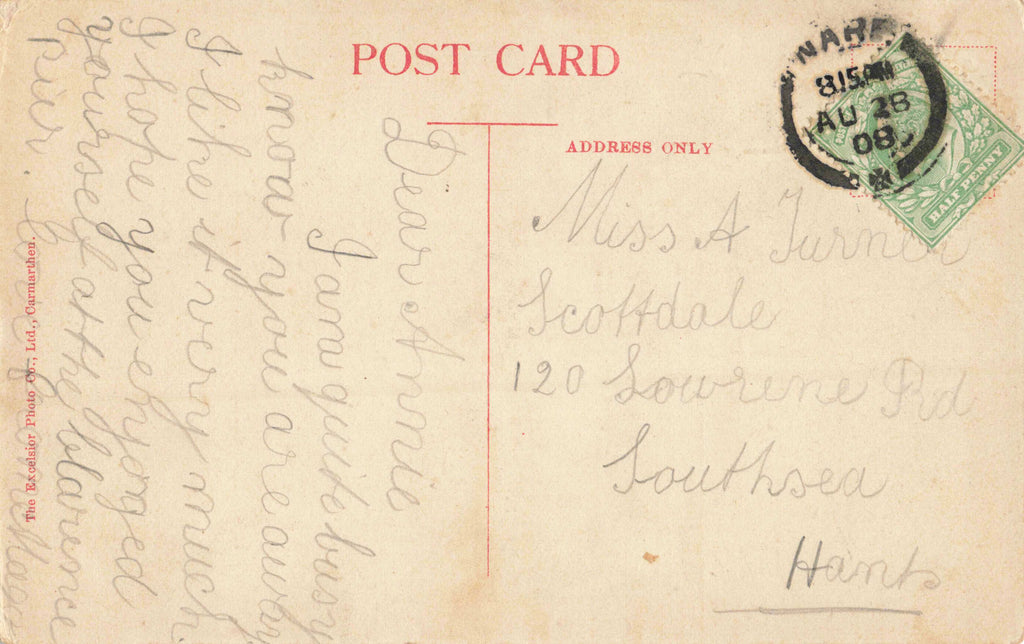 POST CARD
ADDRESS ONLY
NARB
8.15 PM
AU 28
08
HALF PENNY
Miss A Turner
Scottdale
120 Lowrene Rd
Southsea
Hants
Dear Annie
I am quite busy
know you are away
I like it very much
I hope you enhoyed
yourself at the Clarence
pier. Love from
The Excelsior Photo Co., Ltd., Carmarthen.